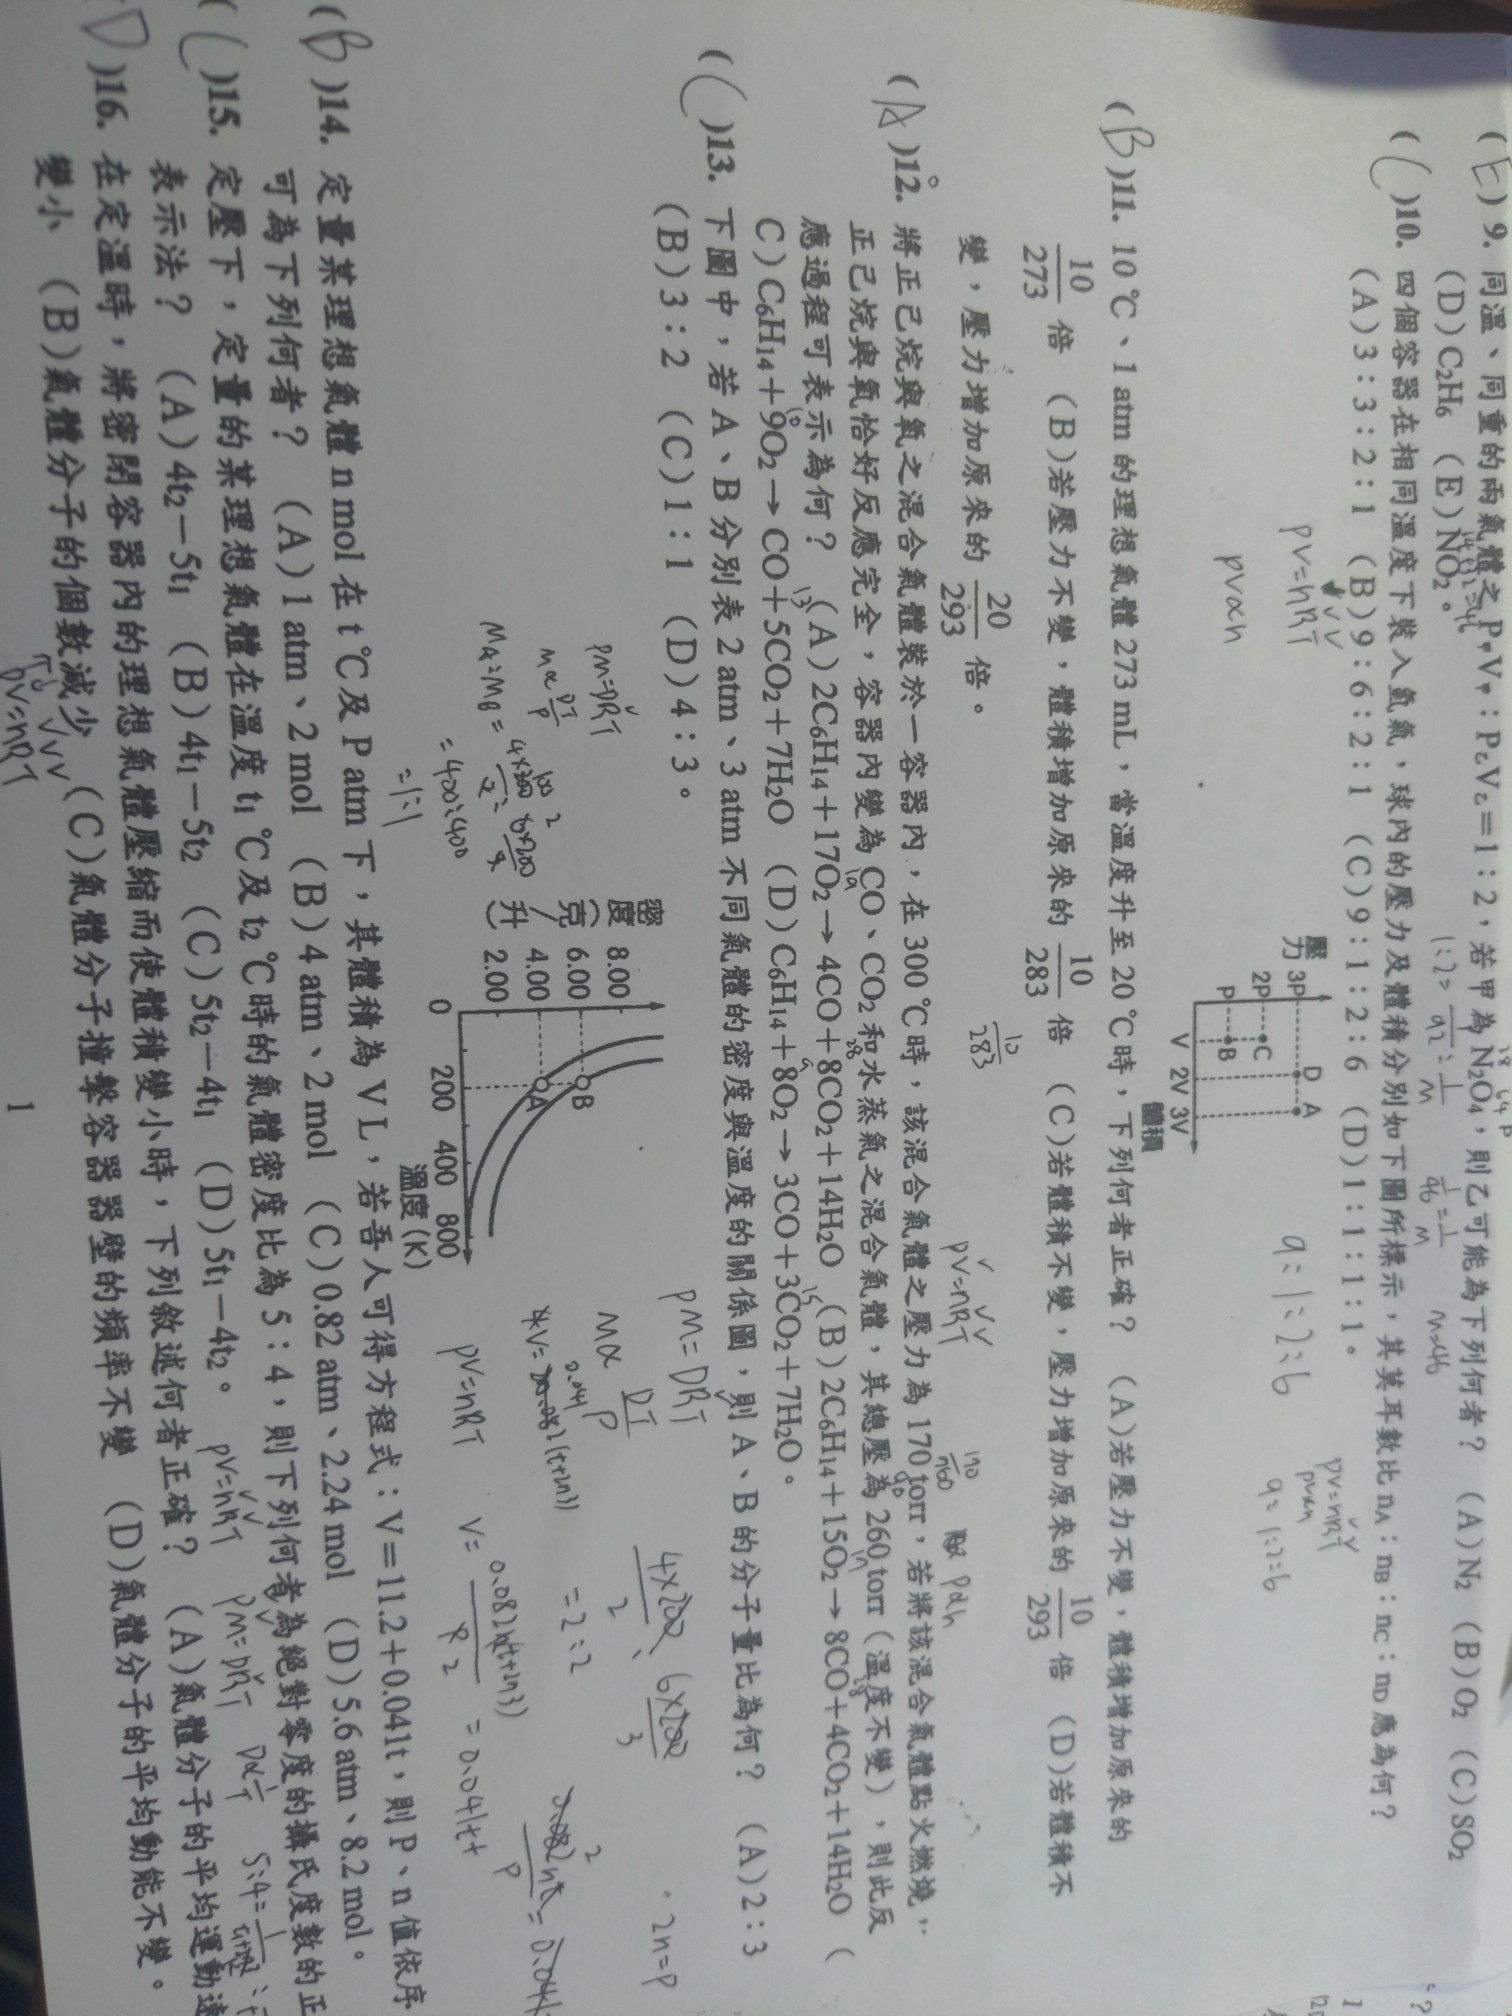 (E) 9. 同溫、同重的兩氣體之P甲V甲：P乙V乙＝1：2，若甲為N₂O₄，則乙可能為下列何者？ (A)N₂ (B)O₂ (C)SO₂
(D)C₂H₆ (E)NO₂。
1:2=
M=46
(C)10. 四個容器在相同溫度下裝入氫氣，球內的壓力及體積分別如下圖所標示，其莫耳數比nA：nB：nC：nD應為何？
(A)3：3：2：1 (B)9：6：2：1 (C)9：1：2：6 (D)1：1：1：1。
PV=nRT
PV∝n
壓力
3P
2P
P
D
A
C
B
V 2V 3V
體積
9:1:2:6
PV=nRT
PV∝n
9:1:2:6
(B)11. 10℃、1 atm的理想氣體273 mL，當溫度升至20℃時，下列何者正確？ (A)若壓力不變，體積增加原來的
10/273 倍 (B)若壓力不變，體積增加原來的 10/283 倍 (C)若體積不變，壓力增加原來的 10/293 倍 (D)若體積不
變，壓力增加原來的 20/293 倍。
10/283
PV=nRT
170/760
P∝n
(A)12. 將正己烷與氧之混合氣體裝於一容器內，在300℃時，該混合氣體之壓力為170 torr，若將該混合氣體點火燃燒，
正己烷與氧恰好反應完全，容器內變為CO、CO₂和水蒸氣之混合氣體，其總壓為260 torr（溫度不變），則此反
應過程可表示為何？ (A)2C₆H₁₄＋17O₂→4CO＋8CO₂＋14H₂O (B)2C₆H₁₄＋15O₂→8CO＋4CO₂＋14H₂O (
C)C₆H₁₄＋9O₂→CO＋5CO₂＋7H₂O (D)C₆H₁₄＋8O₂→3CO＋3CO₂＋7H₂O。
(C)13. 下圖中，若A、B分別表2 atm、3 atm不同氣體的密度與溫度的關係圖，則A、B的分子量比為何？ (A)2：3
(B)3：2 (C)1：1 (D)4：3。
PM=DRT
M∝DT/P
=400:400
=1:1
密度（克/升）
8.00
6.00
4.00
2.00
B
A
0 200 400 800
溫度(K)
PM=DRT
M∝DT/P
4×200/2 : 6×200/3
=2:2
2n=P
PV=nRT
(B)14. 定量某理想氣體n mol在t℃及P atm下，其體積為V L，若吾人可得方程式：V＝11.2＋0.041t，則P、n值依序
可為下列何者？ (A)1 atm、2 mol (B)4 atm、2 mol (C)0.82 atm、2.24 mol (D)5.6 atm、8.2 mol。
(C)15. 定壓下，定量的某理想氣體在溫度t₁℃及t₂℃時的氣體密度比為5：4，則下列何者為絕對零度的攝氏度數的正
表示法？ (A)4t₂－5t₁ (B)4t₁－5t₂ (C)5t₂－4t₁ (D)5t₁－4t₂。
PV=nRT
PM=DRT
D∝1/T
(D)16. 在定溫時，將密閉容器內的理想氣體壓縮而使體積變小時，下列敘述何者正確？ (A)氣體分子的平均運動速
變小 (B)氣體分子的個數減少 (C)氣體分子撞擊容器器壁的頻率不變 (D)氣體分子的平均動能不變。
PV=nRT
1